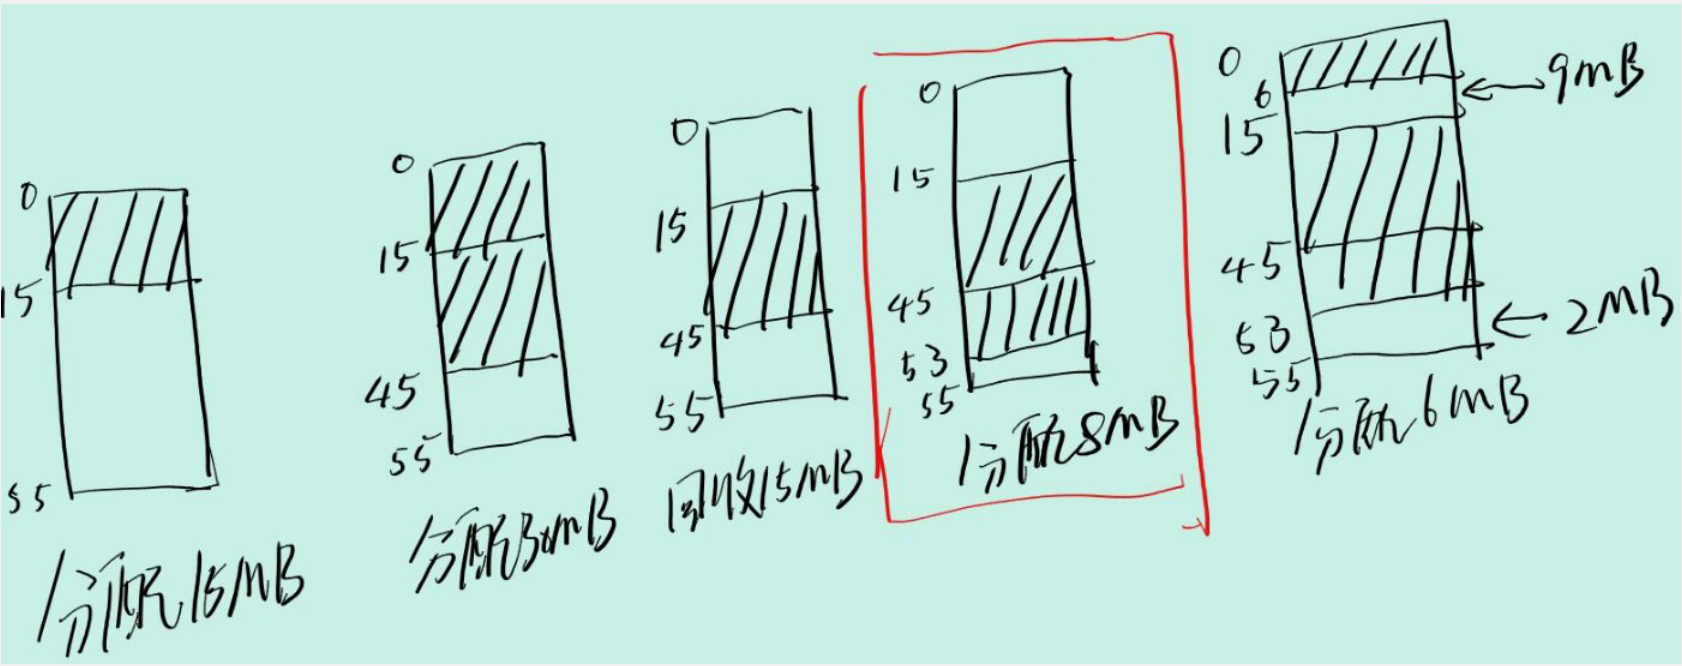 0
15
55
分配15MB
0
15
45
55
分配30MB
0
15
45
55
回收15MB
0
15
45
53
55
分配8MB
0
6
15
45
53
55
9MB
2MB
分配6MB